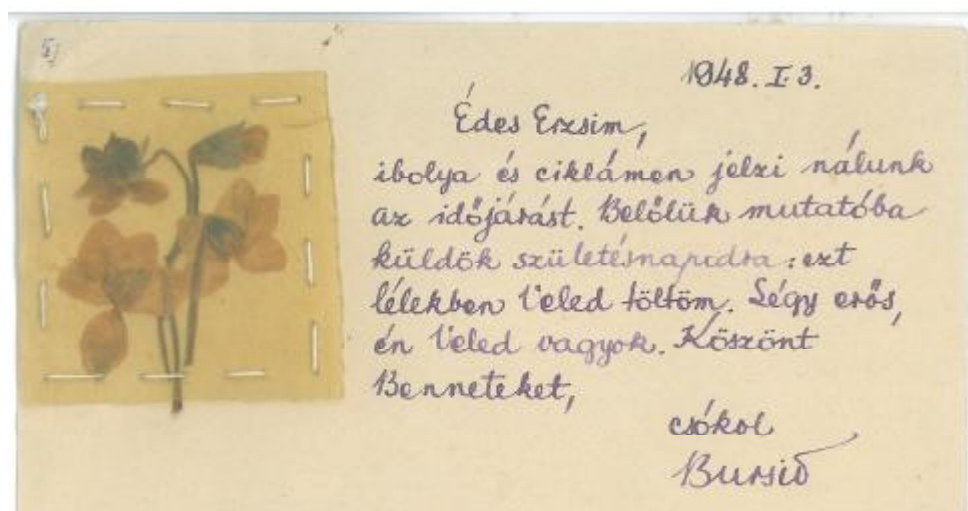 5)
1948. I. 3.
Édes Erzsim,
ibolya és ciklámen jelzi nálunk
az időjárást. Belőlük mutatóba
küldök születésnapodra: ezt
lélekben Veled töltöm. Légy erős,
én Veled vagyok. Köszönt
Benneteket,
csókol
Bursid